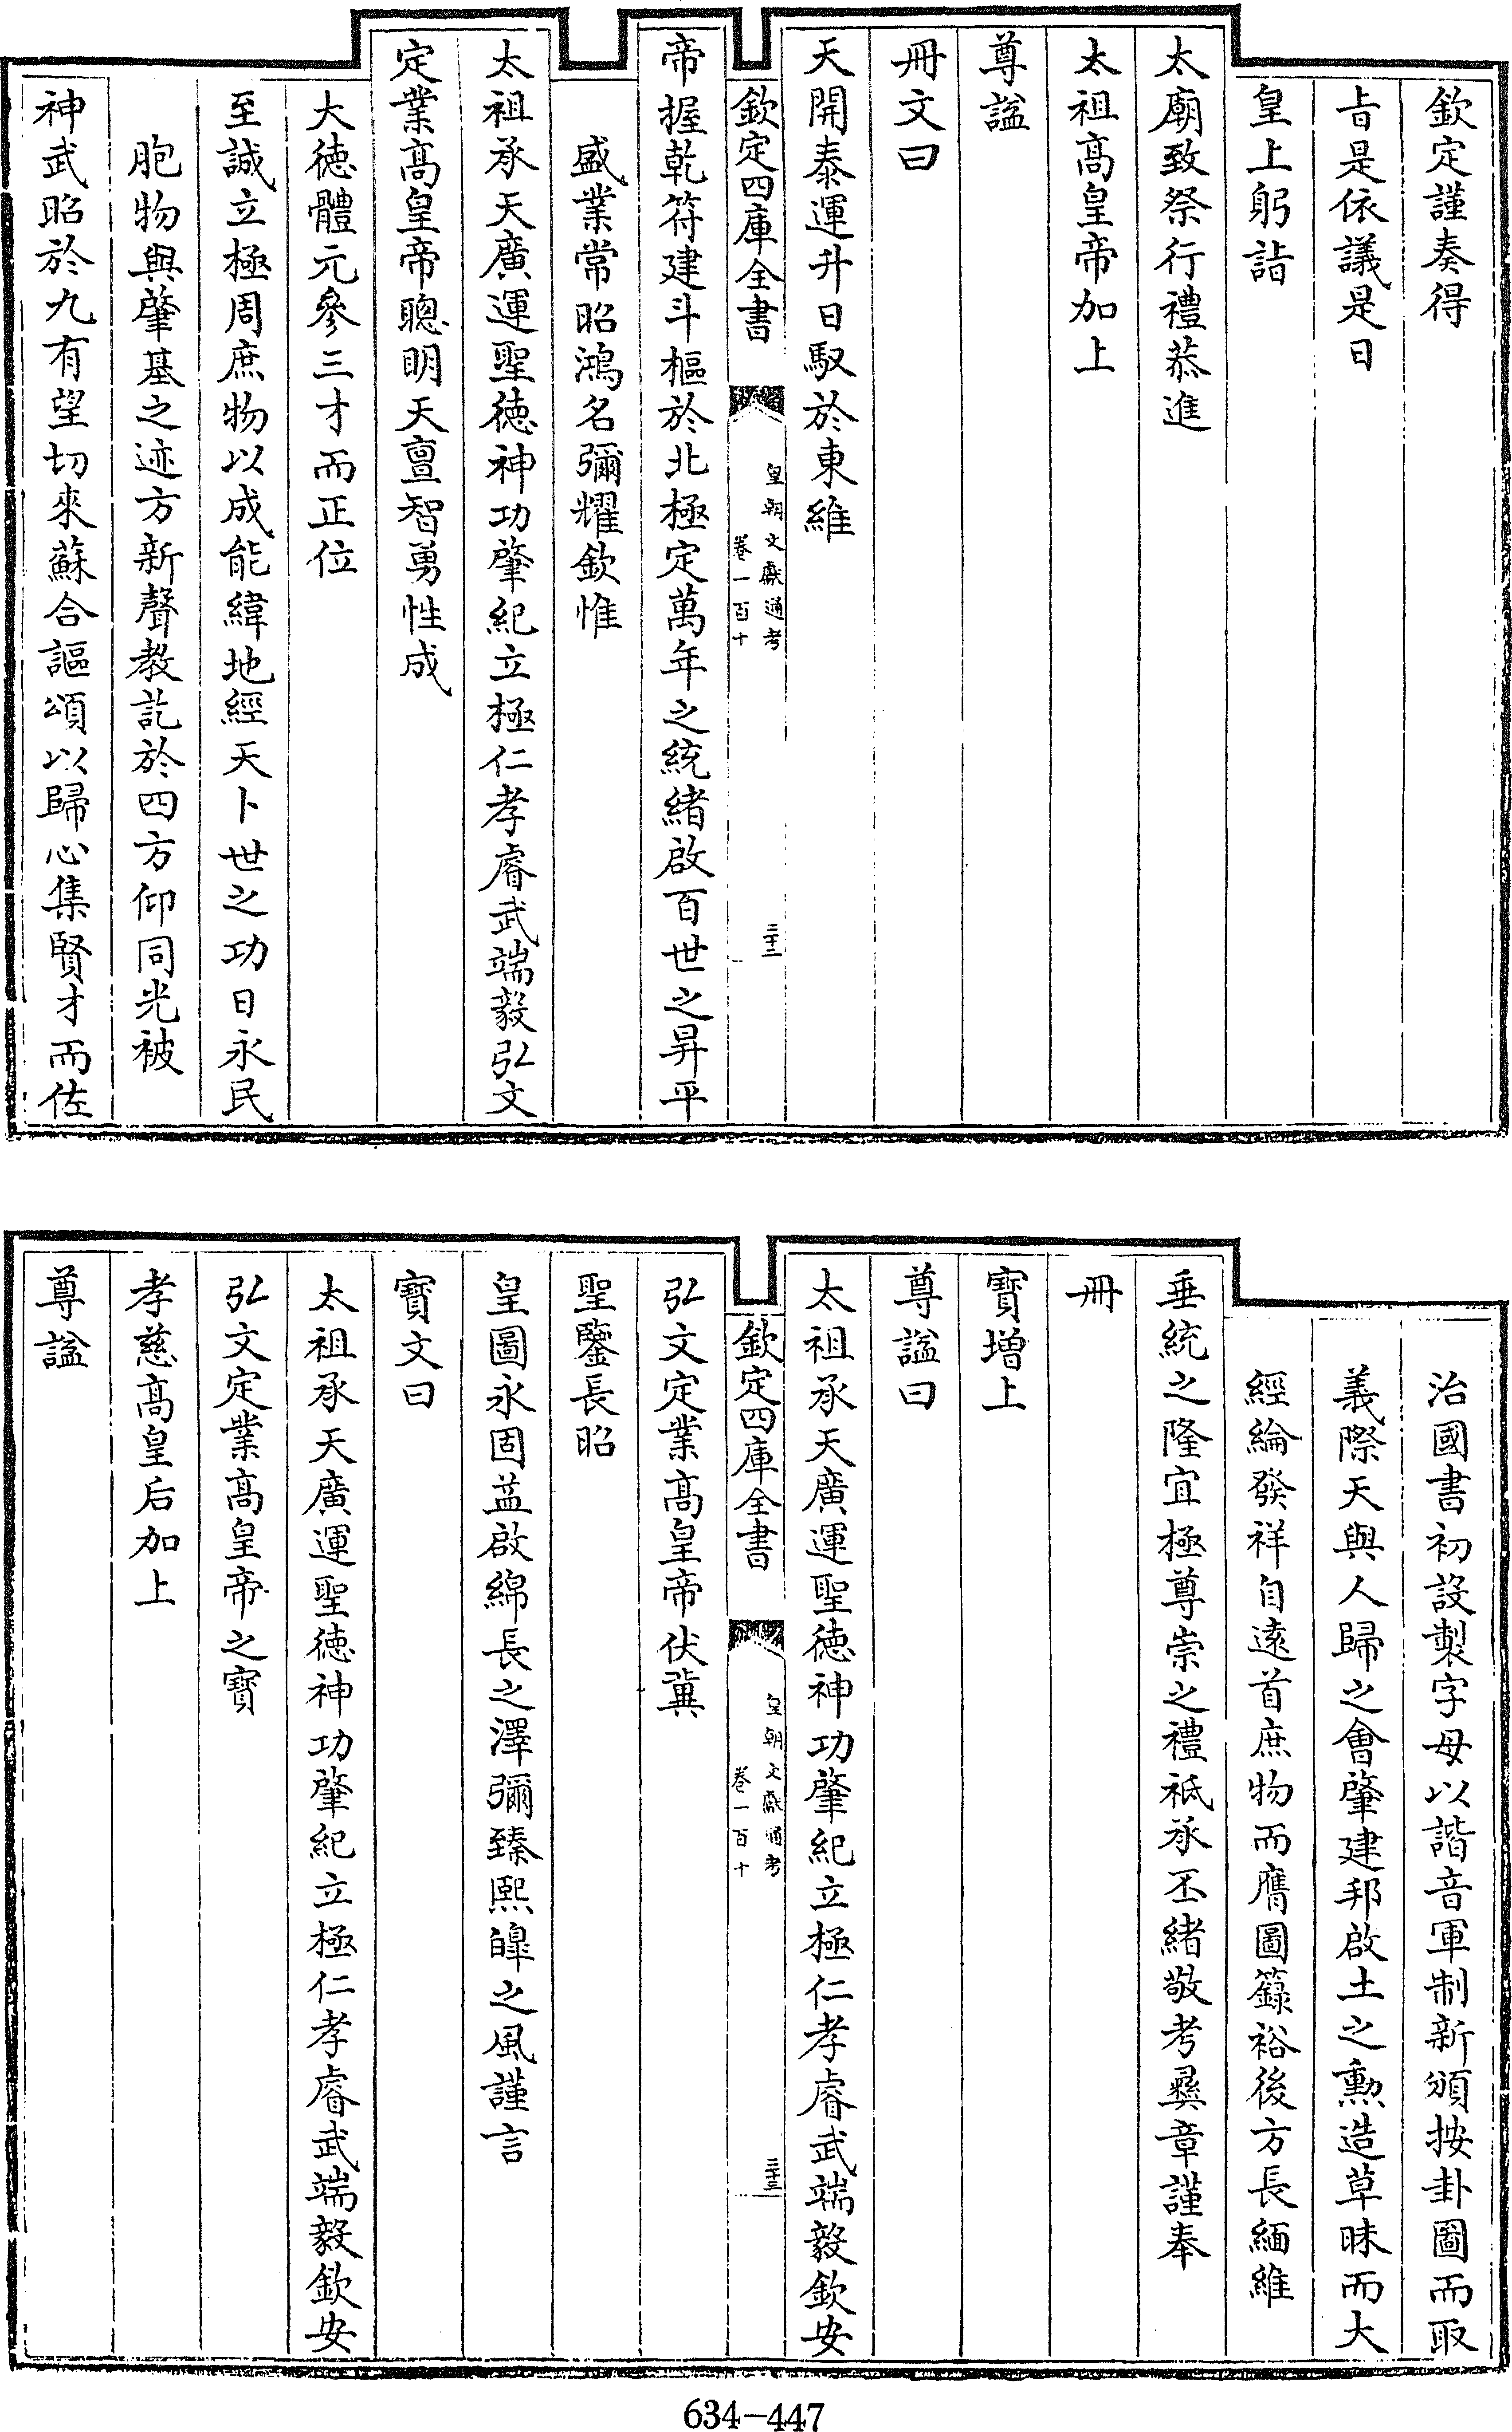 欽定謹奏得
㫖是依議是日
皇上躬詣
太廟致祭行禮恭進
太祖高皇帝加上
尊諡
冊文曰
天開泰運升日馭於東維
欽定四庫全書
皇朝文獻通考
卷一百十
二十二
帝握乾符建斗樞於北極定萬年之統緒啟百世之昇平
盛業常昭鴻名彌耀欽惟
太祖承天廣運聖德神功肇紀立極仁孝睿武端毅弘文
定業高皇帝聰明天亶智勇性成
大德體元參三才而正位
至誠立極周庶物以成能緯地經天卜世之功日永民
胞物與肇基之迹方新聲教訖於四方仰同光被
神武昭於九有望切來蘇合謳頌以歸心集賢才而佐
治國書初設製字母以諧音軍制新頒按卦圖而取
義際天與人歸之會肇建邦啟土之勲造草昧而大
經綸發祥自遠首庶物而膺圖籙裕後方長緬維
垂統之隆宜極尊崇之禮祗承丕緒敬考彞章謹奉
冊
寶增上
尊諡曰
太祖承天廣運聖德神功肇紀立極仁孝睿武端毅欽安
欽定四庫全書
皇朝文獻通考
卷一百十
二十三
弘文定業高皇帝伏冀
聖鑒長昭
皇圖永固益啟綿長之澤彌臻熙皞之風謹言
寶文曰
太祖承天廣運聖德神功肇紀立極仁孝睿武端毅欽安
弘文定業高皇帝之寶
孝慈高皇后加上
尊諡
634-447